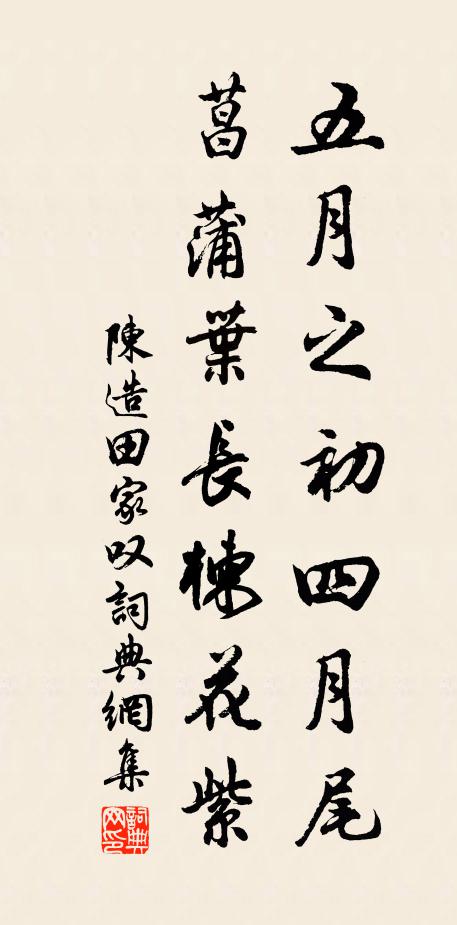 五月之初四月尾
菖蒲葉長楝花紫
陳造田家叹詞典網集
詞典网印